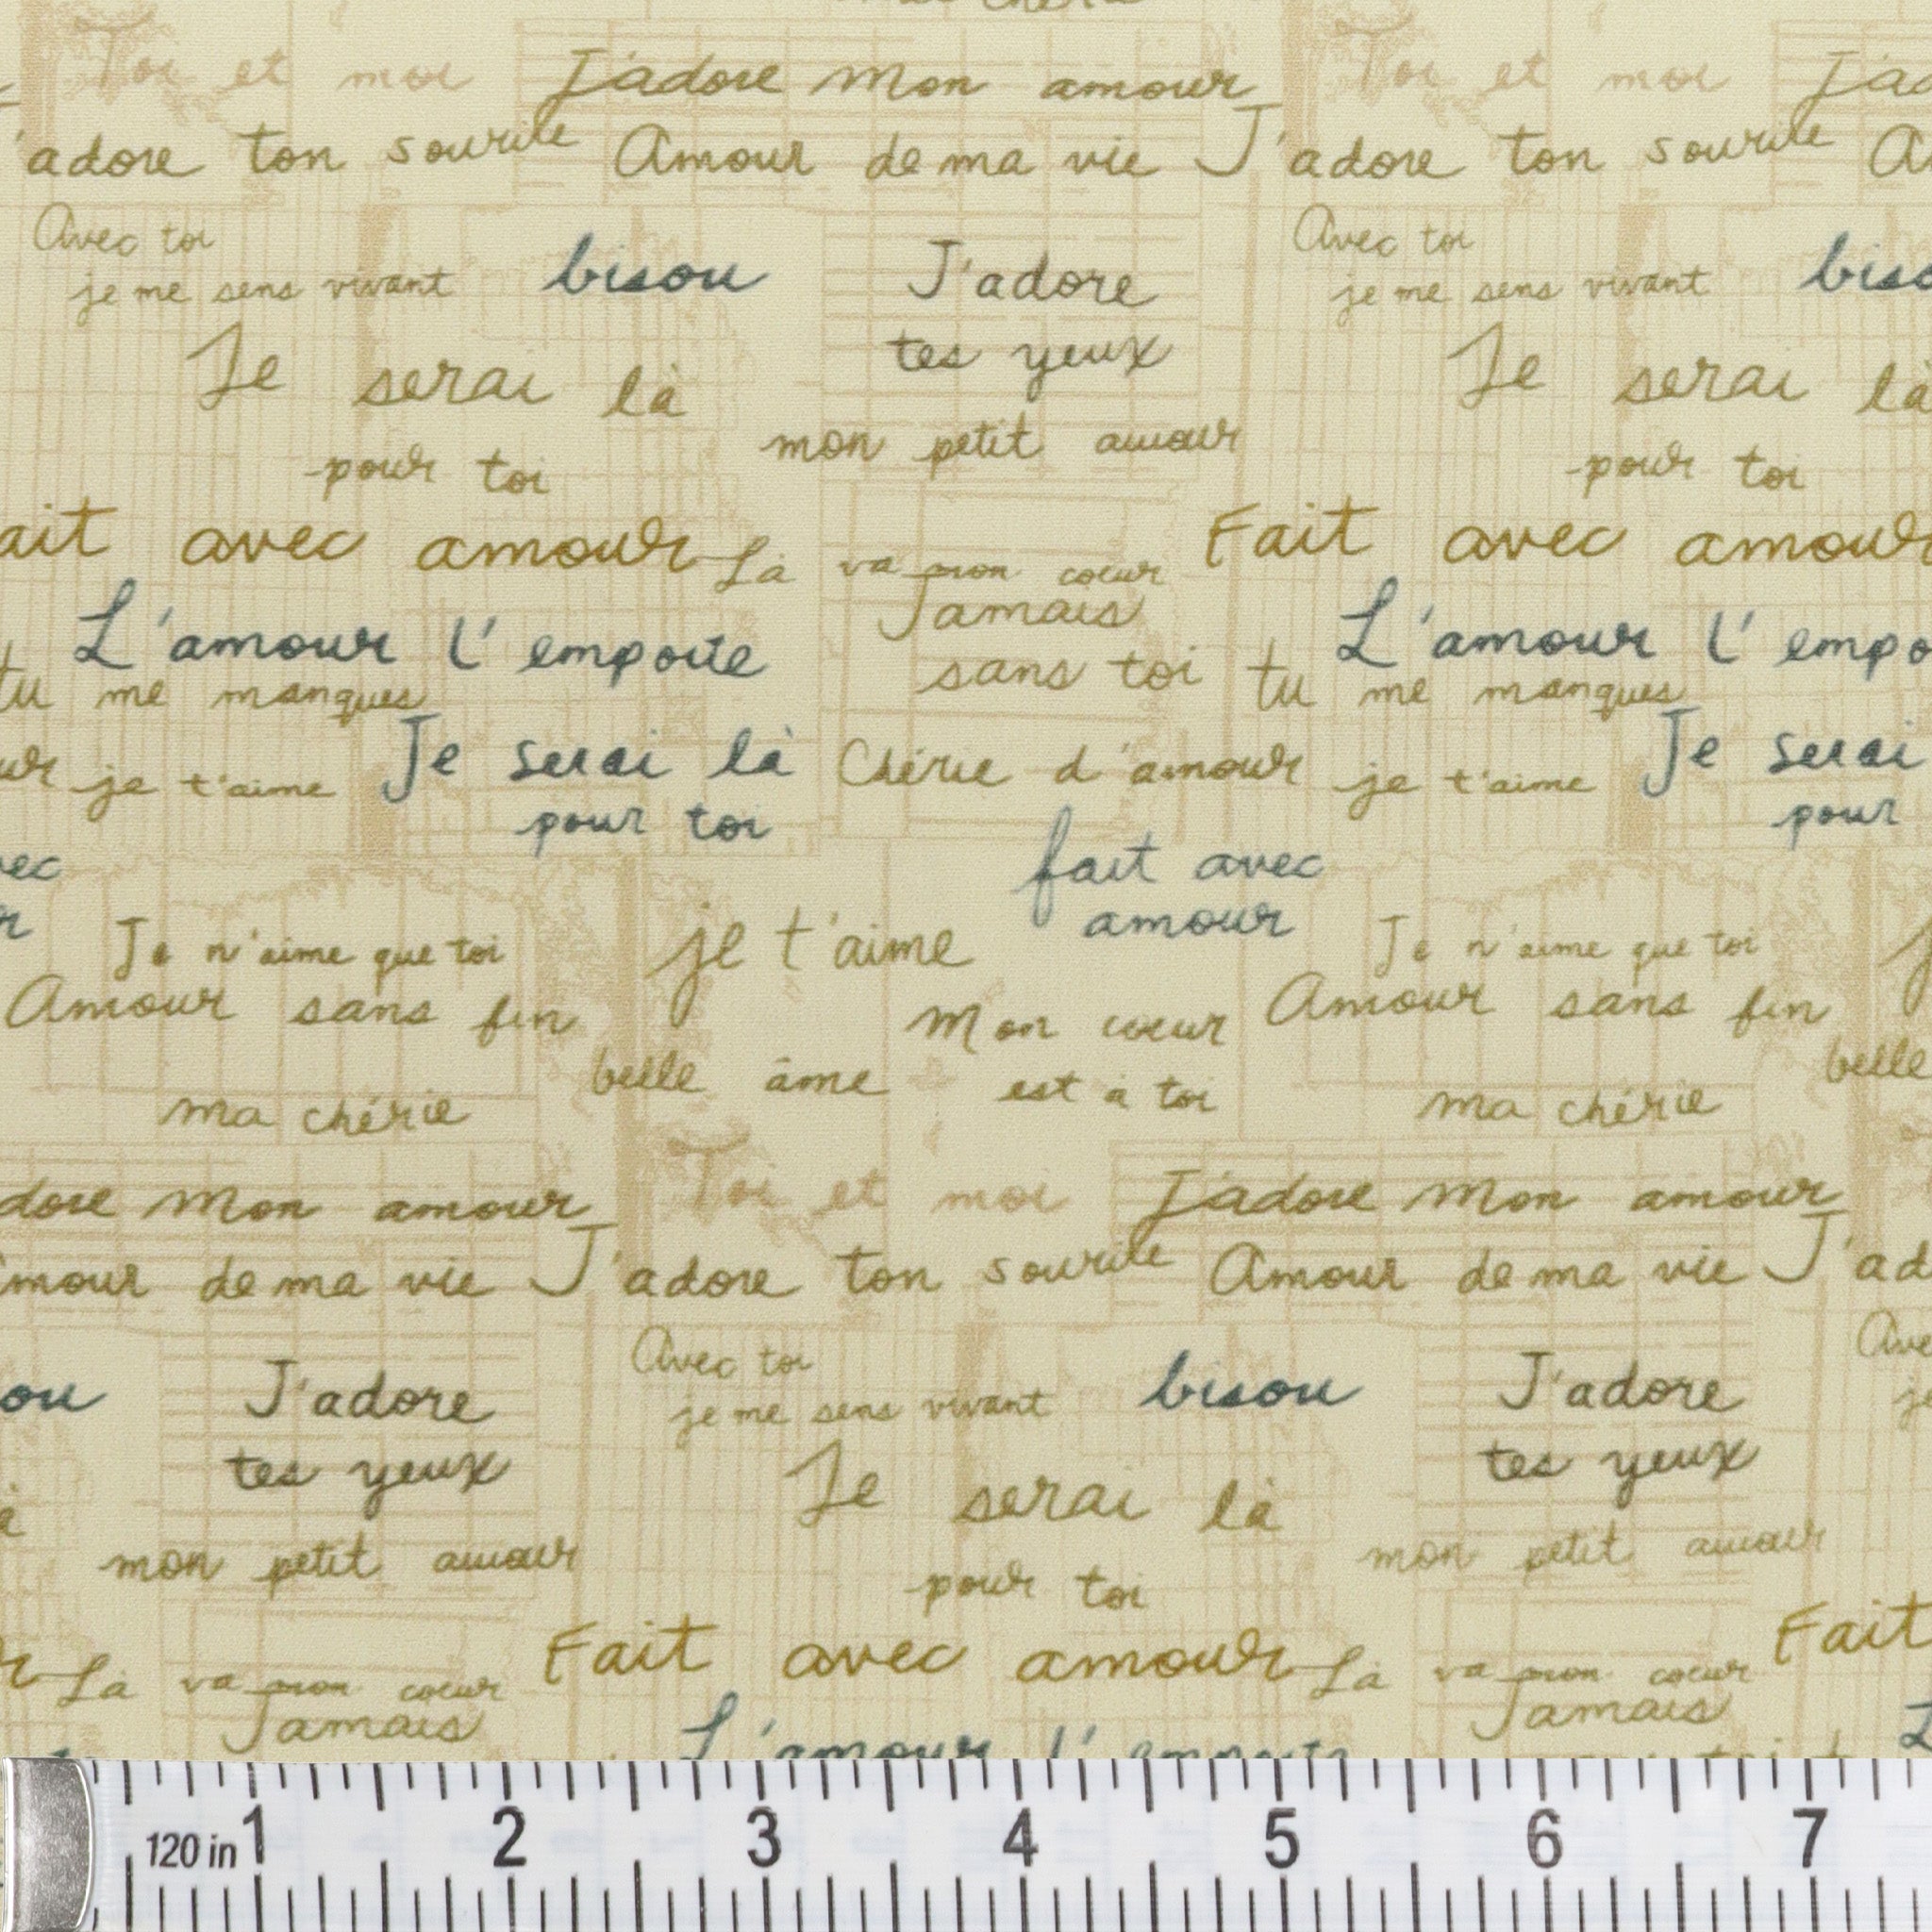 Toi et moi J'adore mon amour Toi et moi J'ad
'adore ton sourire Amour de ma vie J'adore ton sourire A
Avec toi
je me sens vivant bisou J'adore
tes yeux
Avec toi
je me sens vivant biso
Je serai là
pour toi
mon petit amour
Je serai là
pour toi
ait avec amour Là va mon coeur Fait avec amour
L'amour l'emporte Jamais
sans toi
L'amour l'empo
tu me manques tu me manques
ur je t'aime Je serai là
pour toi
Chérie d'amour je t'aime Je serai
pour
ec
r
fait avec
amour
Je n'aime que toi je t'aime Je n'aime que toi j
Amour sans fin Mon coeur
est à toi
Amour sans fin
belle âme belle
ma chérie ma chérie
dore mon amour Toi et moi J'adore mon amour
mour de ma vie J'adore ton sourire Amour de ma vie J'ad
ou J'adore
tes yeux
Avec toi
je me sens vivant bisou J'adore
tes yeux
Ave
je
à
mon petit amour
Je serai là
pour toi
mon petit amour
r Là va mon coeur
Jamais
Fait avec amour Là va mon coeur
Jamais
Fait
L'amour l'emporte
120 in 1 2 3 4 5 6 7